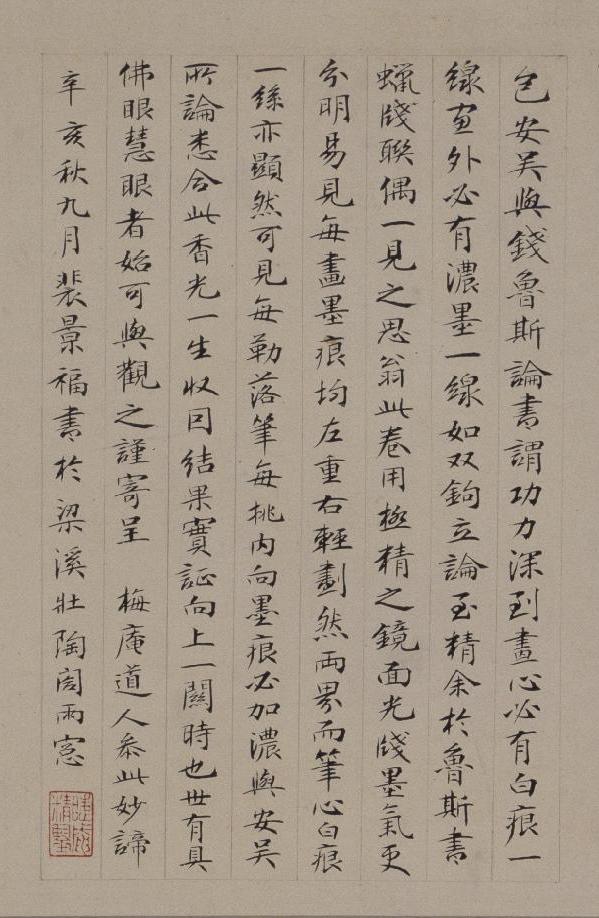 包安吴與錢魯斯論書謂功力深到畫心必有白痕一
線畫外必有濃墨一線如双鉤立論至精余於魯斯書
蠟牋聯偶一見之思翁此卷用極精之鏡面光牋墨氣更
分明易見每畫墨痕均左重右輕劃然兩界而筆心白痕
一絲亦顯然可見每勒落筆每挑内向墨痕必加濃與安吴
所論悉合此香光一生收因結果實証向上一關時也世有具
佛眼慧眼者始可與觀之謹寄呈 梅庵道人叅此妙諦
辛亥秋九月裴景福書於梁溪壯陶閣雨窓